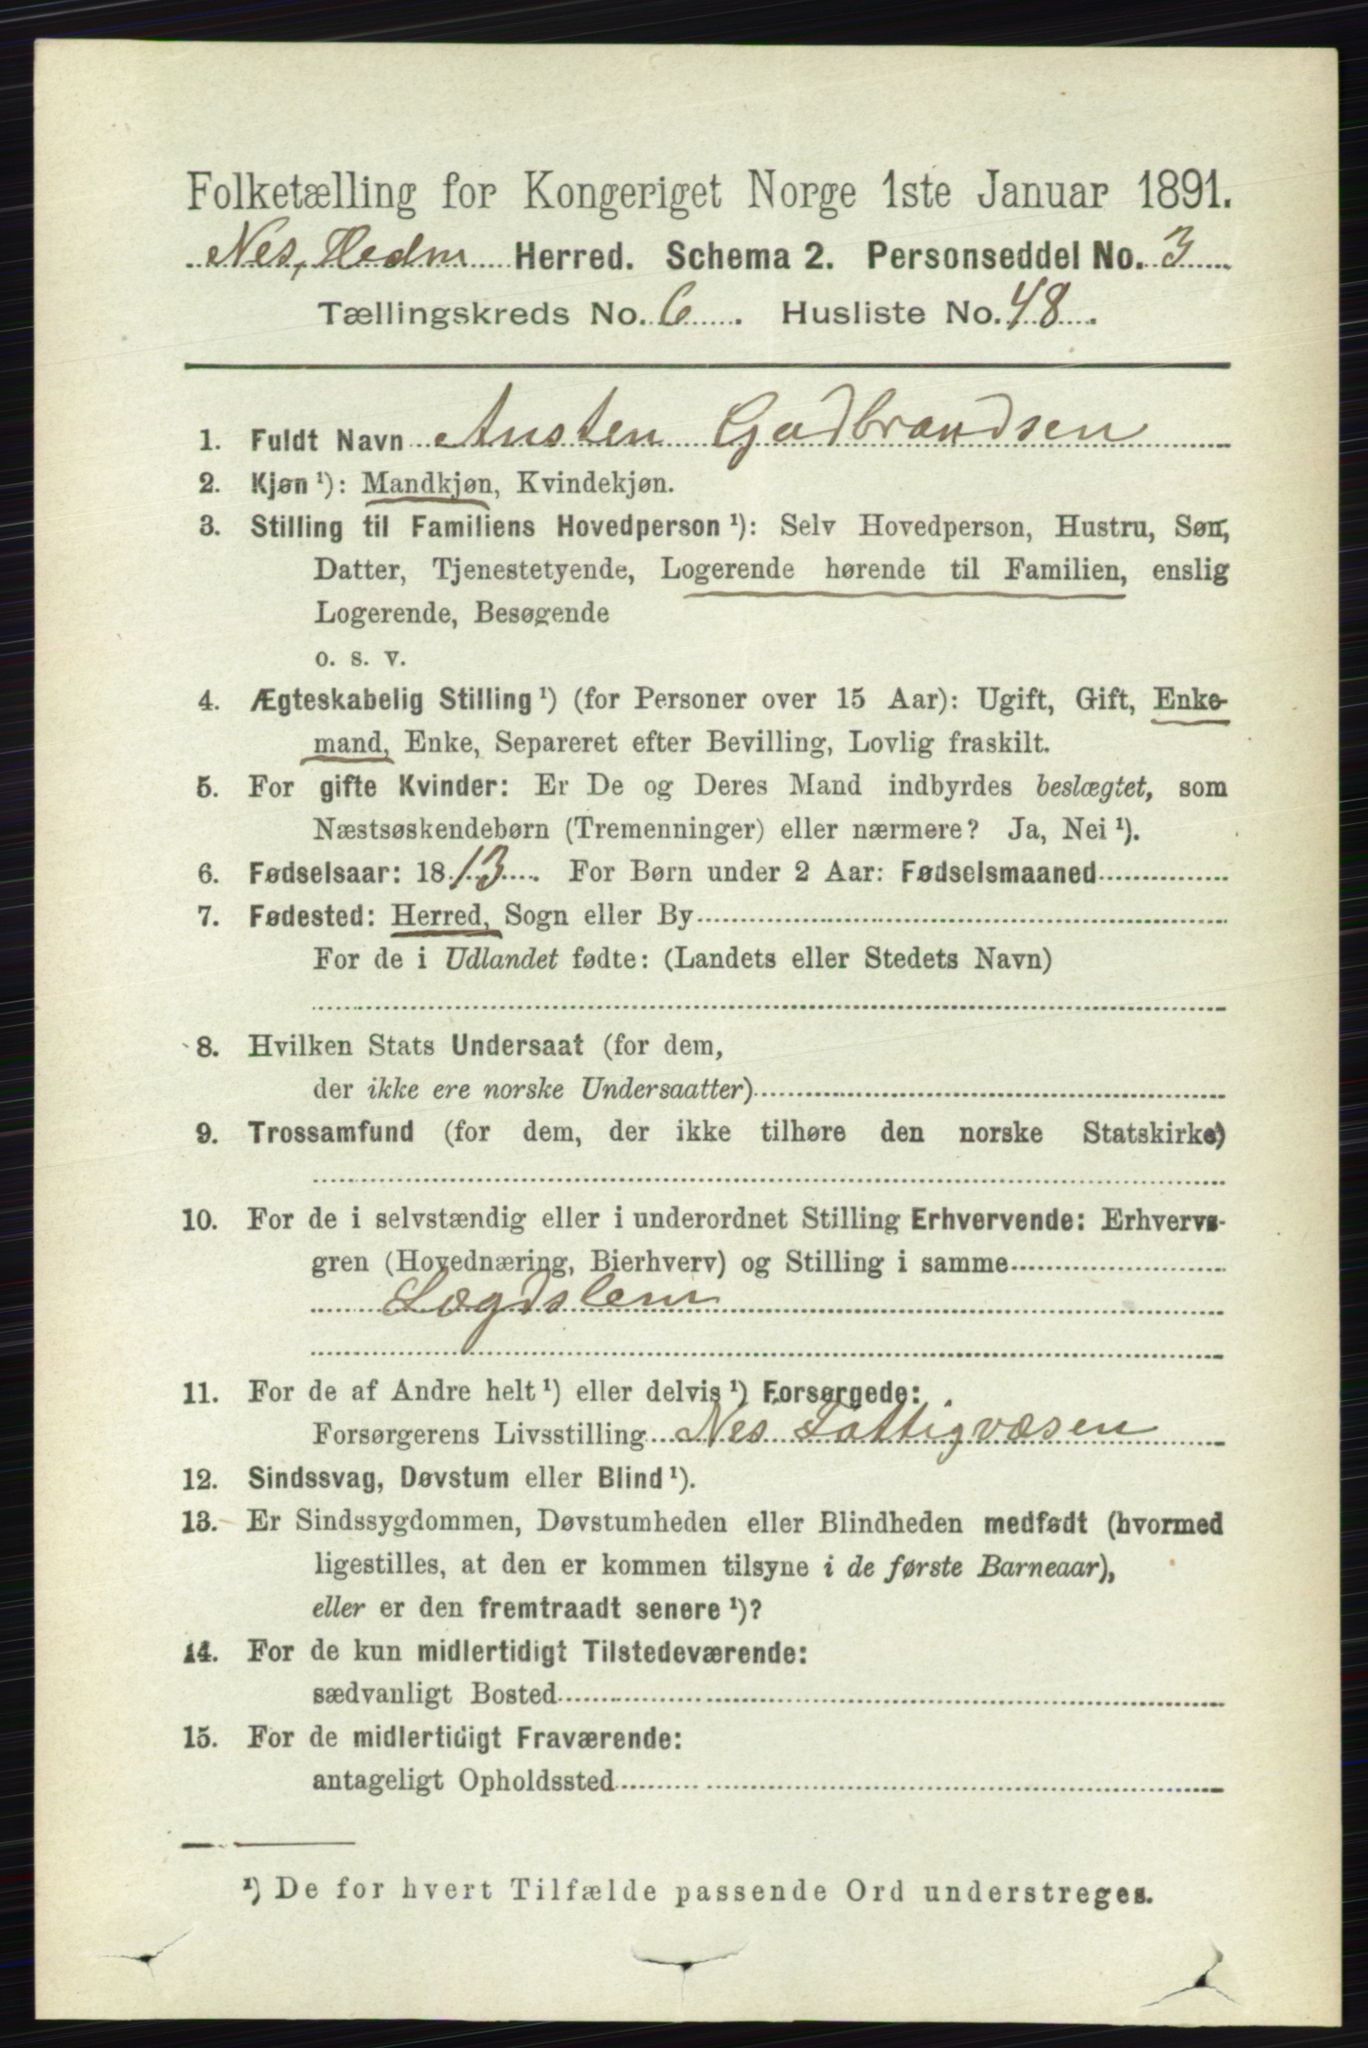 Folketælling for Kongeriget Norge 1ste Januar 1891.
Nes, Hedm Herred. Schema 2. Personseddel No. 3
Tællingskreds No. 6. Husliste No. 48.
1. Fuldt Navn Ansten Gudbrandsen
2. Kjøn ¹): Mandkjøn, Kvindekjøn.
3. Stilling til Familiens Hovedperson ¹): Selv Hovedperson, Hustru, Søn,
Datter, Tjenestetyende, Logerende hørende til Familien, enslig
Logerende, Besøgende
o. s. v.
4. Ægteskabelig Stilling ¹) (for Personer over 15 Aar): Ugift, Gift, Enke-
mand, Enke, Separeret efter Bevilling, Lovlig fraskilt.
5. For gifte Kvinder: Er De og Deres Mand indbyrdes beslægtet, som
Næstsøskendebørn (Tremenninger) eller nærmere? Ja, Nei ¹).
6. Fødselsaar: 1813. For Børn under 2 Aar: Fødselsmaaned
7. Fødested: Herred, Sogn eller By
For de i Udlandet fødte: (Landets eller Stedets Navn)
8. Hvilken Stats Undersaat (for dem,
der ikke ere norske Undersaatter)
9. Trossamfund (for dem, der ikke tilhøre den norske Statskirke)
10. For de i selvstændig eller i underordnet Stilling Erhvervende: Erhvervs-
gren (Hovednæring, Bierhverv) og Stilling i samme
Lægdslem
11. For de af Andre helt ¹) eller delvis ¹) Forsørgede:
Forsørgerens Livsstilling Nes Fattigvæsen
12. Sindssvag, Døvstum eller Blind ¹).
13. Er Sindssygdommen, Døvstumheden eller Blindheden medfødt (hvormed
ligestilles, at den er kommen tilsyne i de første Barneaar),
eller er den fremtraadt senere ¹)?
14. For de kun midlertidigt Tilstedeværende:
sædvanligt Bosted
15. For de midlertidigt Fraværende:
antageligt Opholdssted
¹) De for hvert Tilfælde passende Ord understreges.